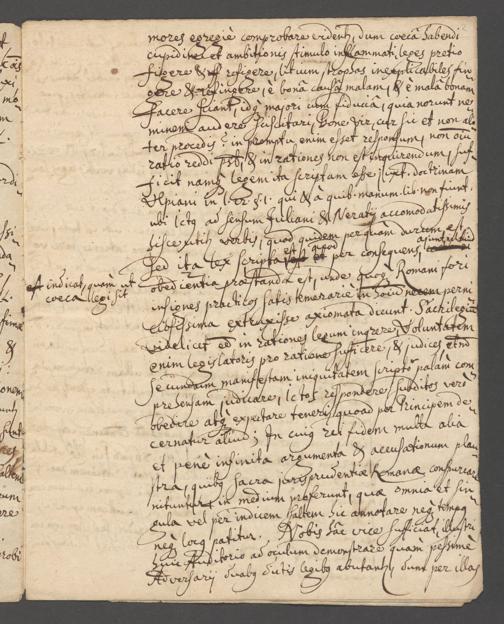 mores egregiè comprobare videnti, dum coeca habendi
cupiditas et ambitionis stimulo inflammati, leges pretio
figere & refigere, litium strophas inexplicabiles fin
gere & refingere, è bonâ causa malam, & è malâ bonam
facere sciant, idq majori cum fiducia, quia norunt ne
minem audere susciturí, bone vir, cur sic et non ali
ter procedis? in promptu enim esset responsum, non oiu
ratio reddi pot, & in rationes non est inquirendum, suf
ficit namq legem ita scriptam esse, juxt. doctrinam
Ulpiani in l. 12. §. 1. qui & à quib. manum. lib. non fiunt.
ubi Ictq ad sensum Juliani & Neratij accomodatissimis
hisce utitur verbis, quod quidem perquam durum est,
sed ita lex scripta est et quod per consequens
A indicat, quàm ut
coeca legi sit
obedientia praestanda est, unde quoq Romani fori
practicos satis temerarie in perni
extraxisse axiomata dicunt. Sacrilegiu
videlicet eê in rationes legum ingrere, Voluntatem
enim legislatoris pro ratione sufficere, & judices etnô
secundum manifestam iniquitatem scripto palam com
prehensam judicare, Ictos respondere subditos verò
obedire atq expectare teneri, quoad per Principem de
cernatur aliud; In cuiq rei fidem multa alia
et penè infinita argumenta & accusationum plau
stra, quibq sacra jurisprudentiae Romanae conspurcare
nituntur in medium proferunt, quae omnia et sin
gula vel per indicem saltem hic annotare neq tempq
neq locq patitur. Nobis hâc vice sufficiat, illustri
huic Auditorio ad oculum demonstrare quam pessimè
Adversarij duabq dictis legibq abutantr, dum per illas